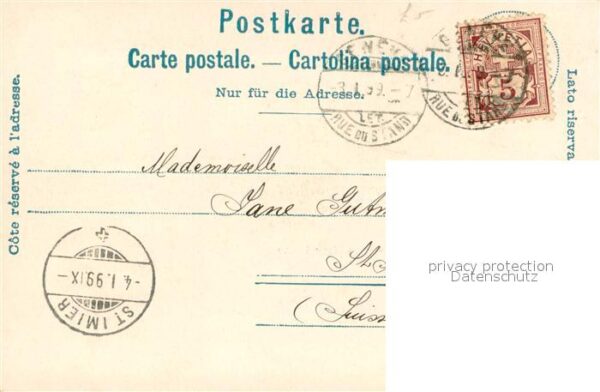 Postkarte.
Carte postale. — Cartolina postale.
Nur für die Adresse.
Côte réservé à l'adresse.
Lato riserva
GENÈVE
-3.I.99.-7
LET.
RUE DU STAND
5
Mademoiselle
Jane Gutm
St
(Suisse
ST IMIER
-4.I.99.IX-
privacy protection
Datenschutz